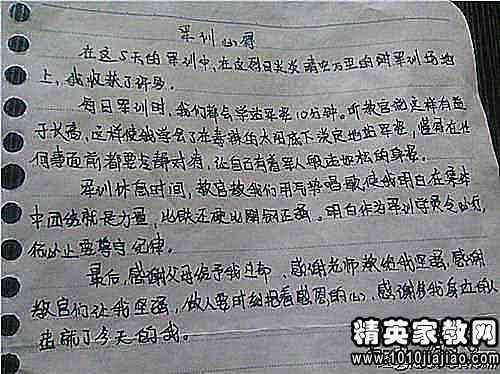 军训心得
在这5天的军训中,在这烈日炎炎晴空万里的时军训场地
上,我收获了许多。
每日军训时,我们都会学站军姿10分钟。听教官说这样有益
于长高,这样使我学会了在毒辣的太阳底下淡定地站军姿,懂得在任
何事面前都要去认真对待,让自己有着军人般站如松的身姿。
军训休息时间,教官教我们用写势唱歌使我明白在集体
中团结就是力量,比铁还硬比刚钢正强。明白作为军训学员令必行,
何必止要尊守纪律。
最后,感谢父母给予我这都、感谢老师教给我坚强,感谢
教官们让我坚强,做人要时刻抱着感恩的心,感谢我身边的人
造就了今天的我。
精英家教网
www.1010jiajiao.com